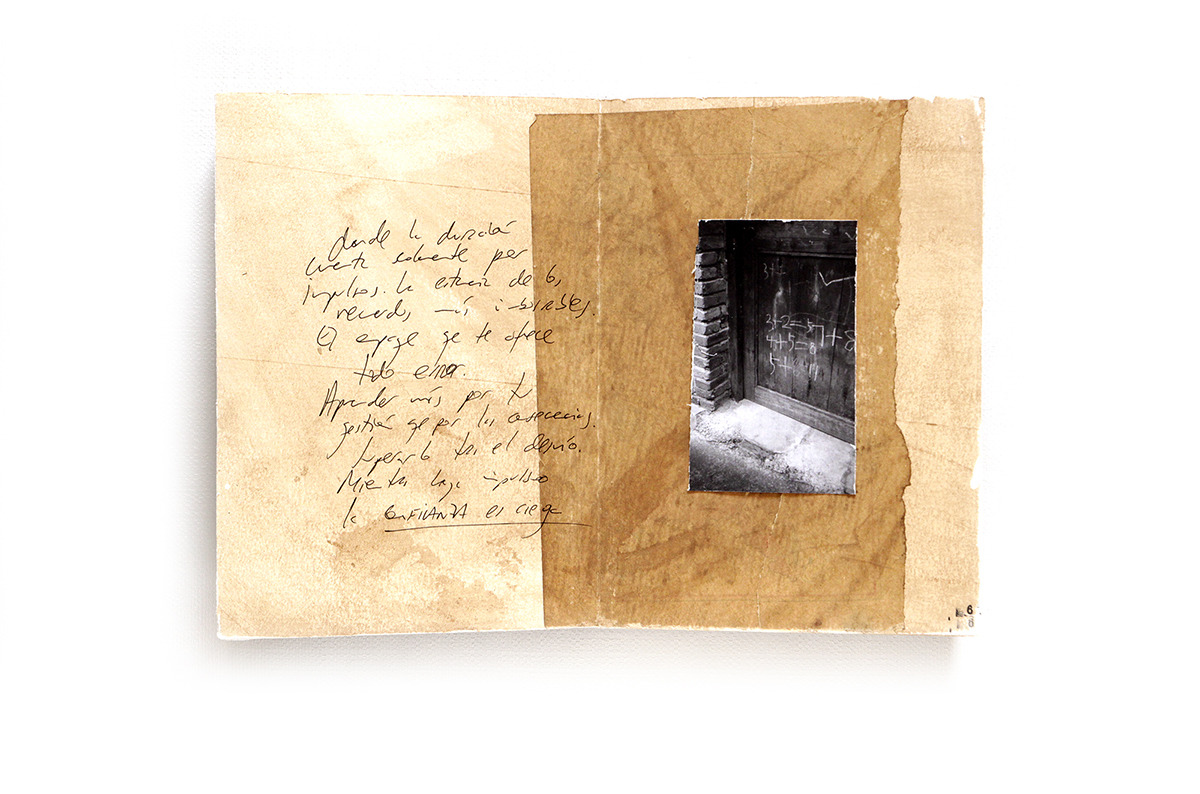 donde la duración
cuenta solamente por
impulsos. la esencia de los
recuerdos más imborrables.
El engaje que te ofrece
todo error.
Aprender más por tu
gestión que por las consecuencias.
Superarlo tras el desvío.
Mientras haya impulso
la CONFIANZA es ciega
3+
3+2=5
7+8
4+5=
5+
6
8